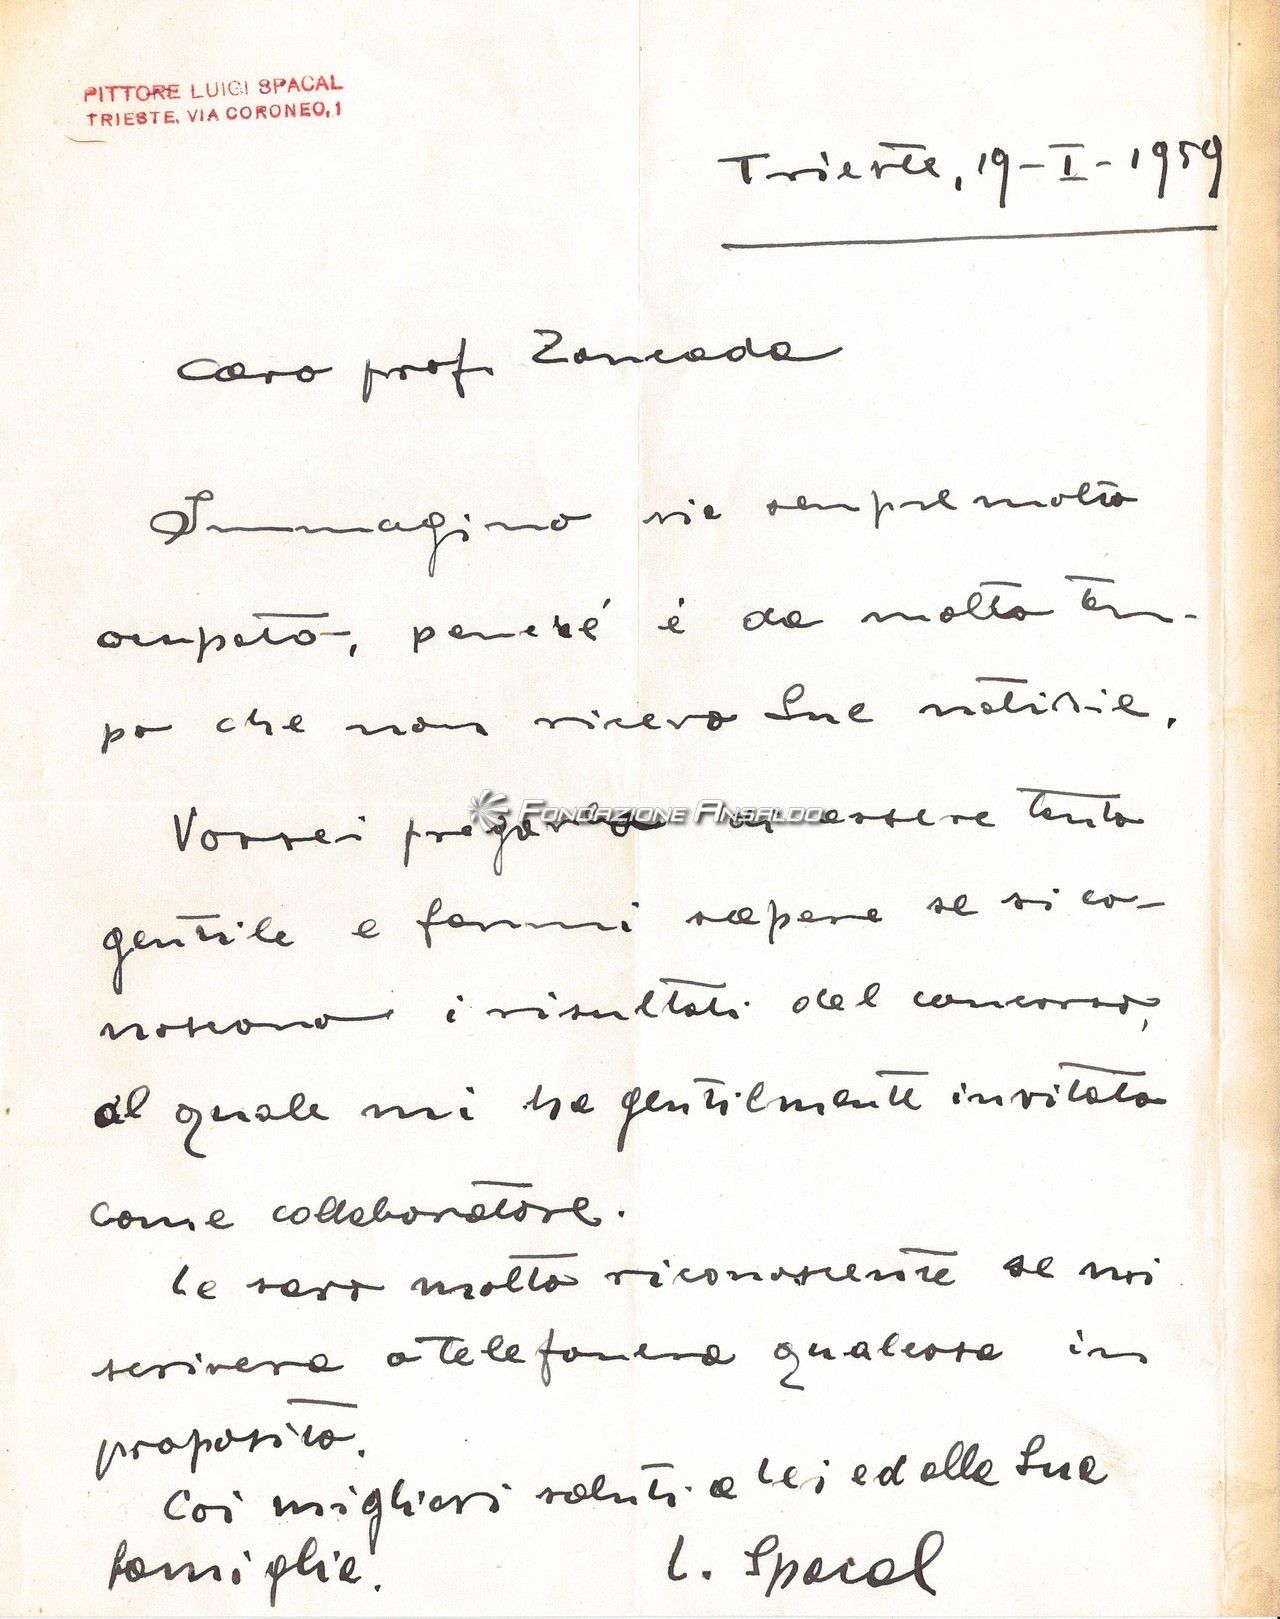 PITTORE LUIGI SPACAL
TRIESTE, VIA CORONEO, 1
Trieste, 19-I-1959
Caro prof. Zancada
Immagino sia sempre molto
ocupato, perché è da molto tem-
po che non ricevo Sue notizie.
Vorrei pregarla di essere tanto
FONDAZIONE ANSALDO
gentile e farmi sapere se si co-
noscono i risultati del concorso,
al quale mi ha gentilmente invitato
come collaboratore.
Le saro molto riconoscente se mi
scriverà o telefonerà qualcosa in
proposito.
Coi migliori saluti a Lei ed alla Sua
famiglia.
L. Spacal